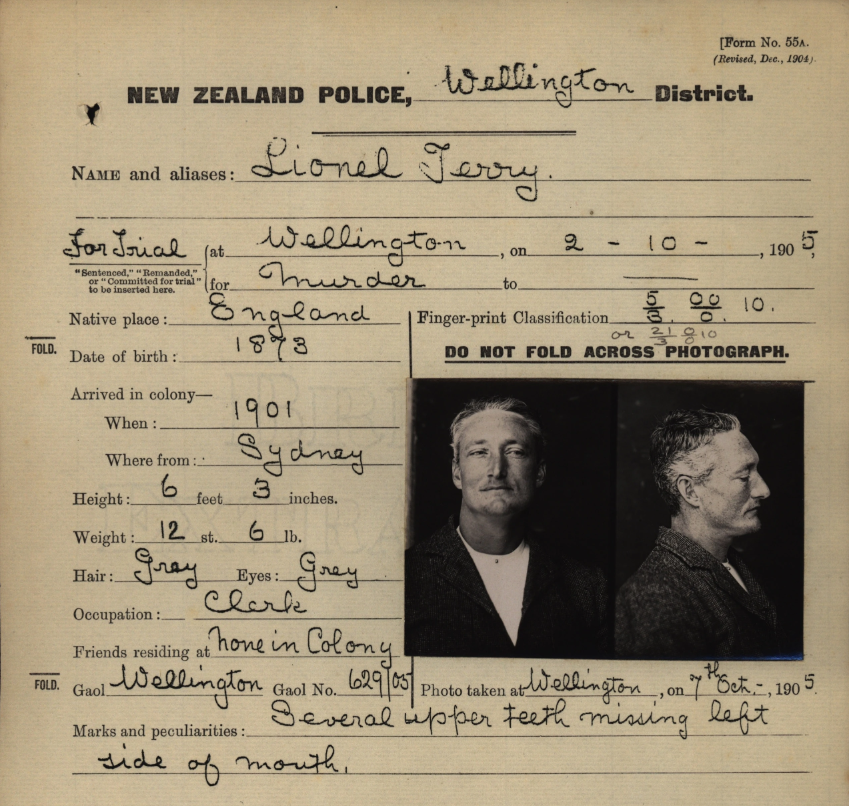 [Form No. 55A.
(Revised, Dec., 1904).
NEW ZEALAND POLICE, Wellington District.
NAME and aliases: Lionel Terry.
For Trial (at Wellington, on 2 - 10 - , 1905,
"Sentenced," "Remanded,"
or "Committed for trial"
to be inserted here.
for Murder to ———
Native place: England
Finger-print Classification 5/3. 00/0. 10.
or 21/3 0/0 10
FOLD.
Date of birth: 1873
DO NOT FOLD ACROSS PHOTOGRAPH.
Arrived in colony—
When: 1901
Where from: Sydney
Height: 6 feet 3 inches.
Weight: 12 st. 6 lb.
Hair: Gray Eyes: Grey
Occupation: Clerk
Friends residing at none in Colony
FOLD.
Gaol Wellington Gaol No. 629/05
Photo taken at Wellington, on 7th Oct.-, 1905.
Marks and peculiarities: Several upper teeth missing left
side of mouth.